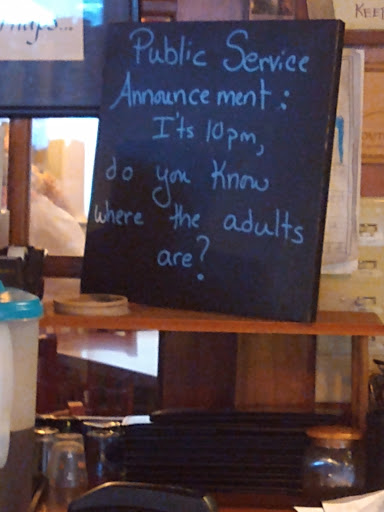 Public Service
Announcement:
It's 10pm,
do you know
where the adults
are?